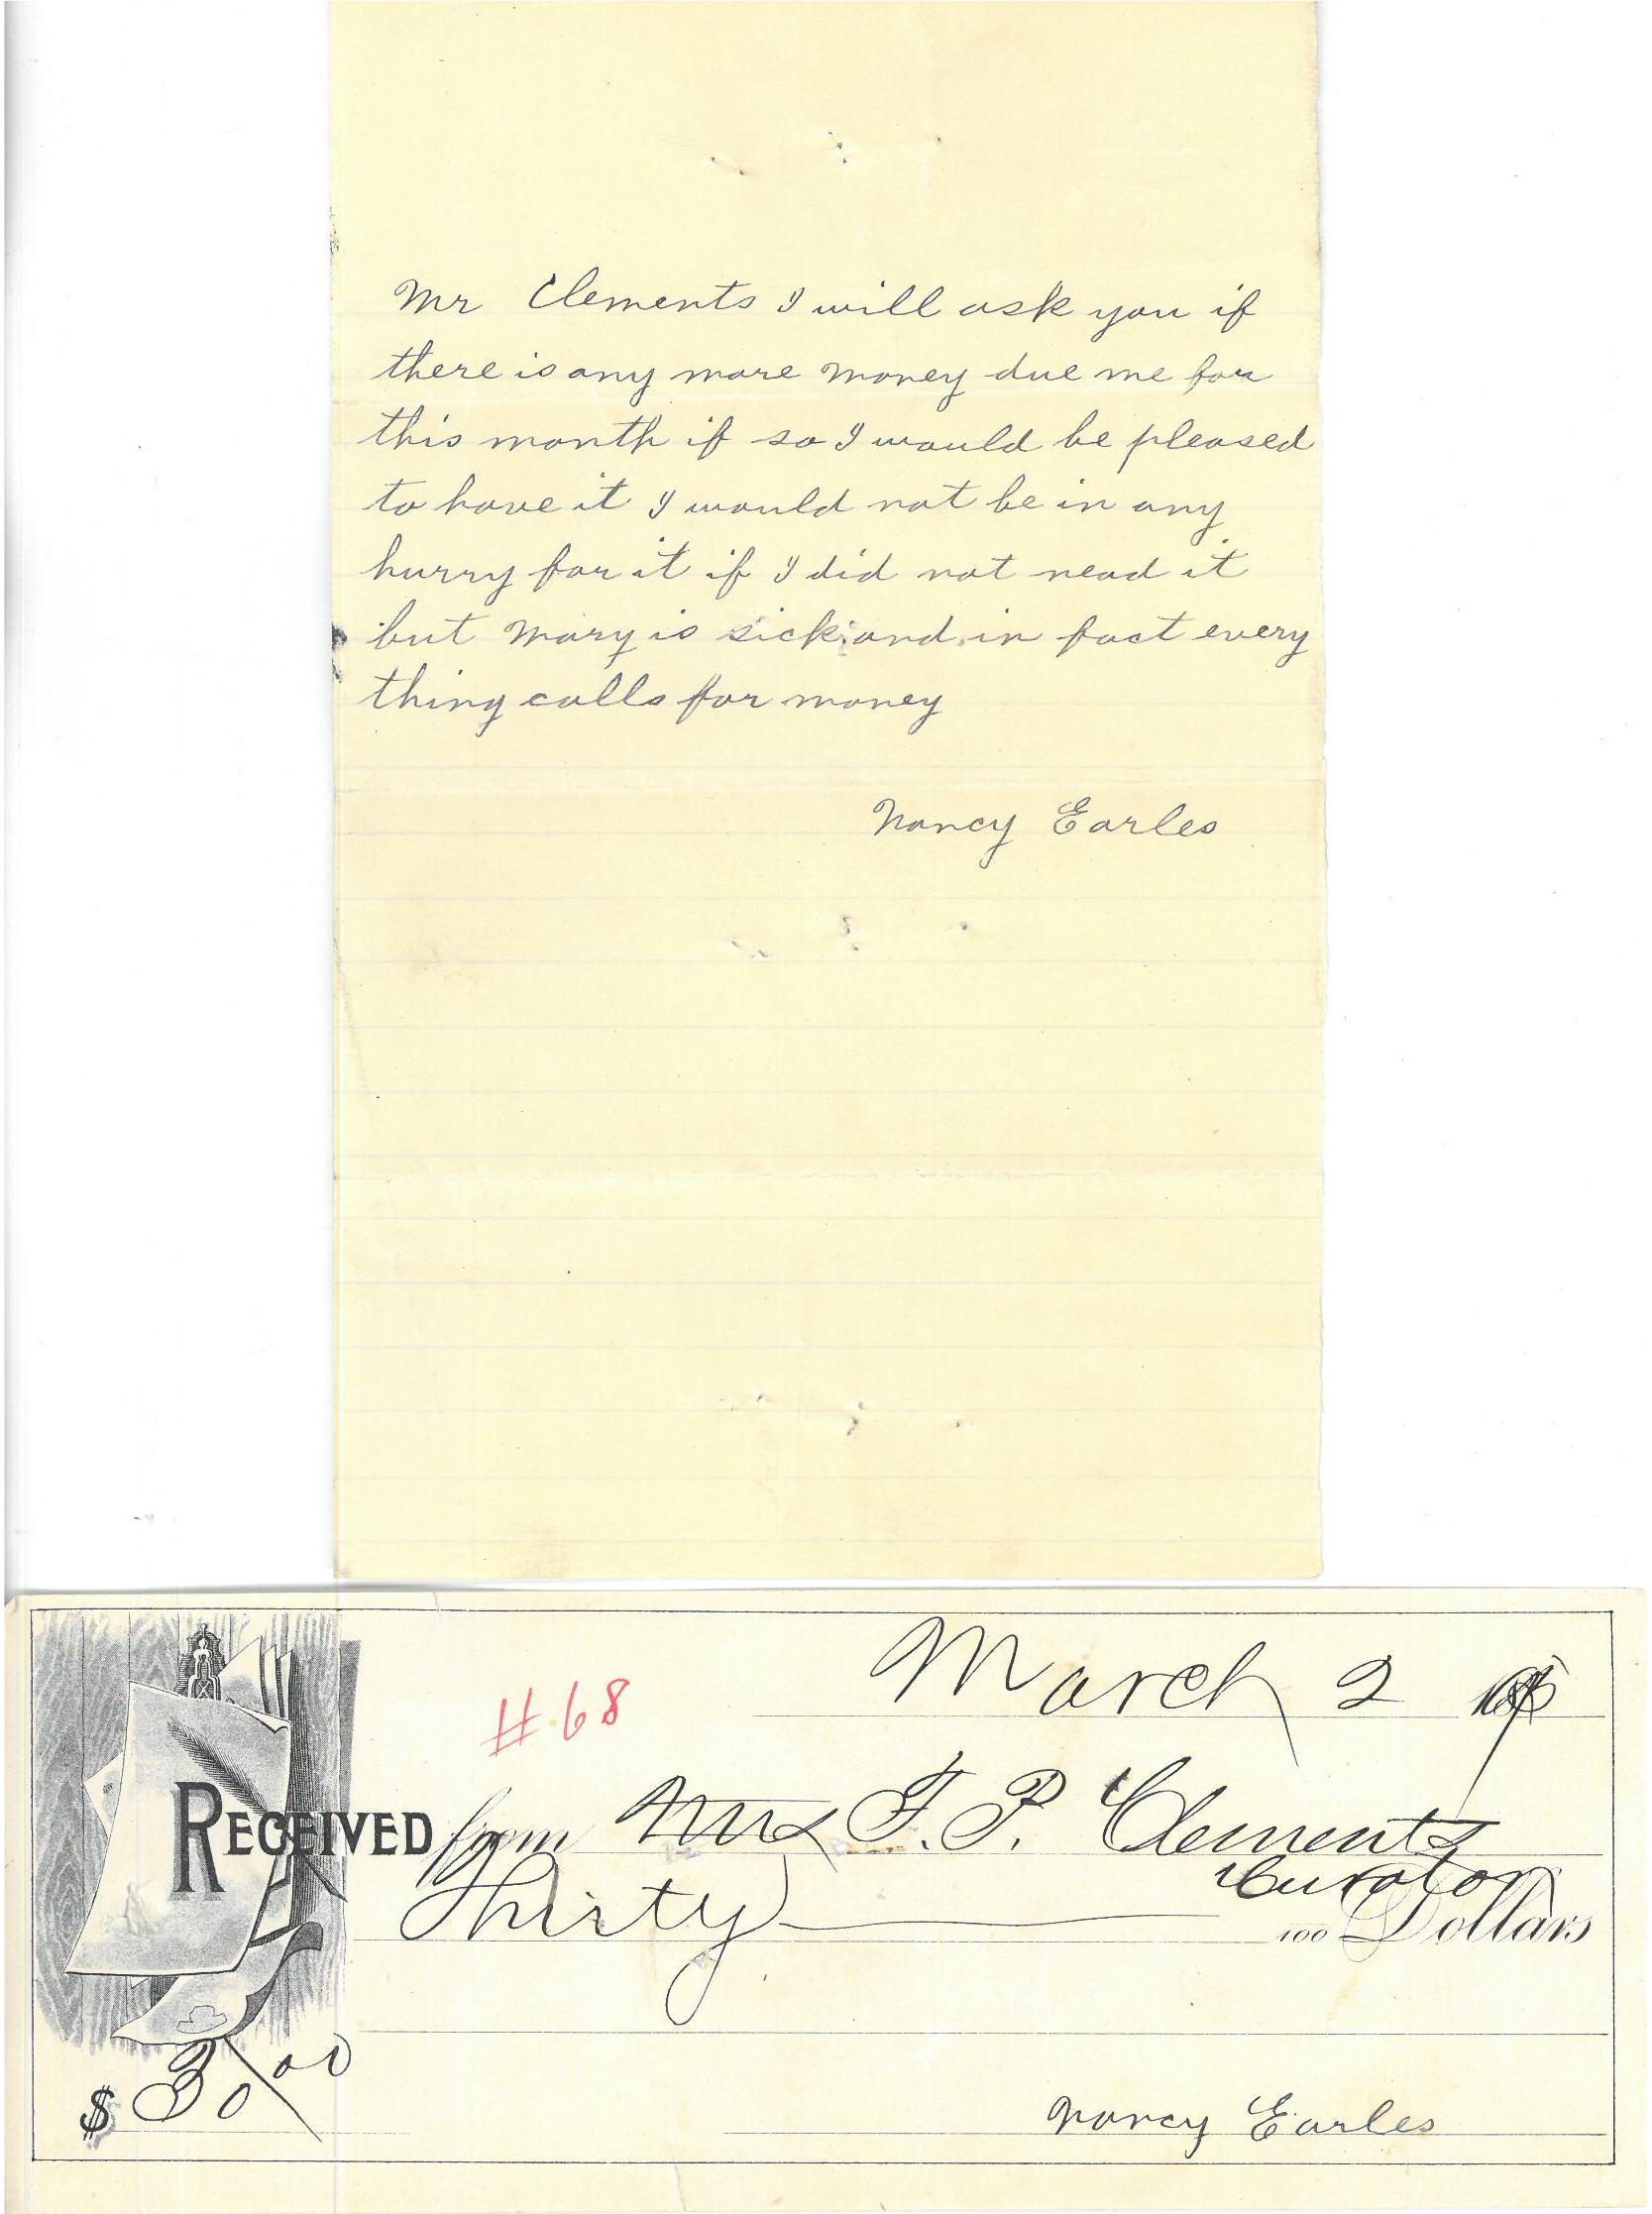 Mr Clements I will ask you if
there is any more money due me for
this month if so I would be pleased
to have it I would not be in any
hurry for it if I did not nead it
but Mary is sick and in fact every
thing calls for money
Nancy Earles
March 2
#68
RECEIVED from Mrs F. P. Clements
Curator
Thirty 100 Dollars
$ 30 00
Nancy Earles